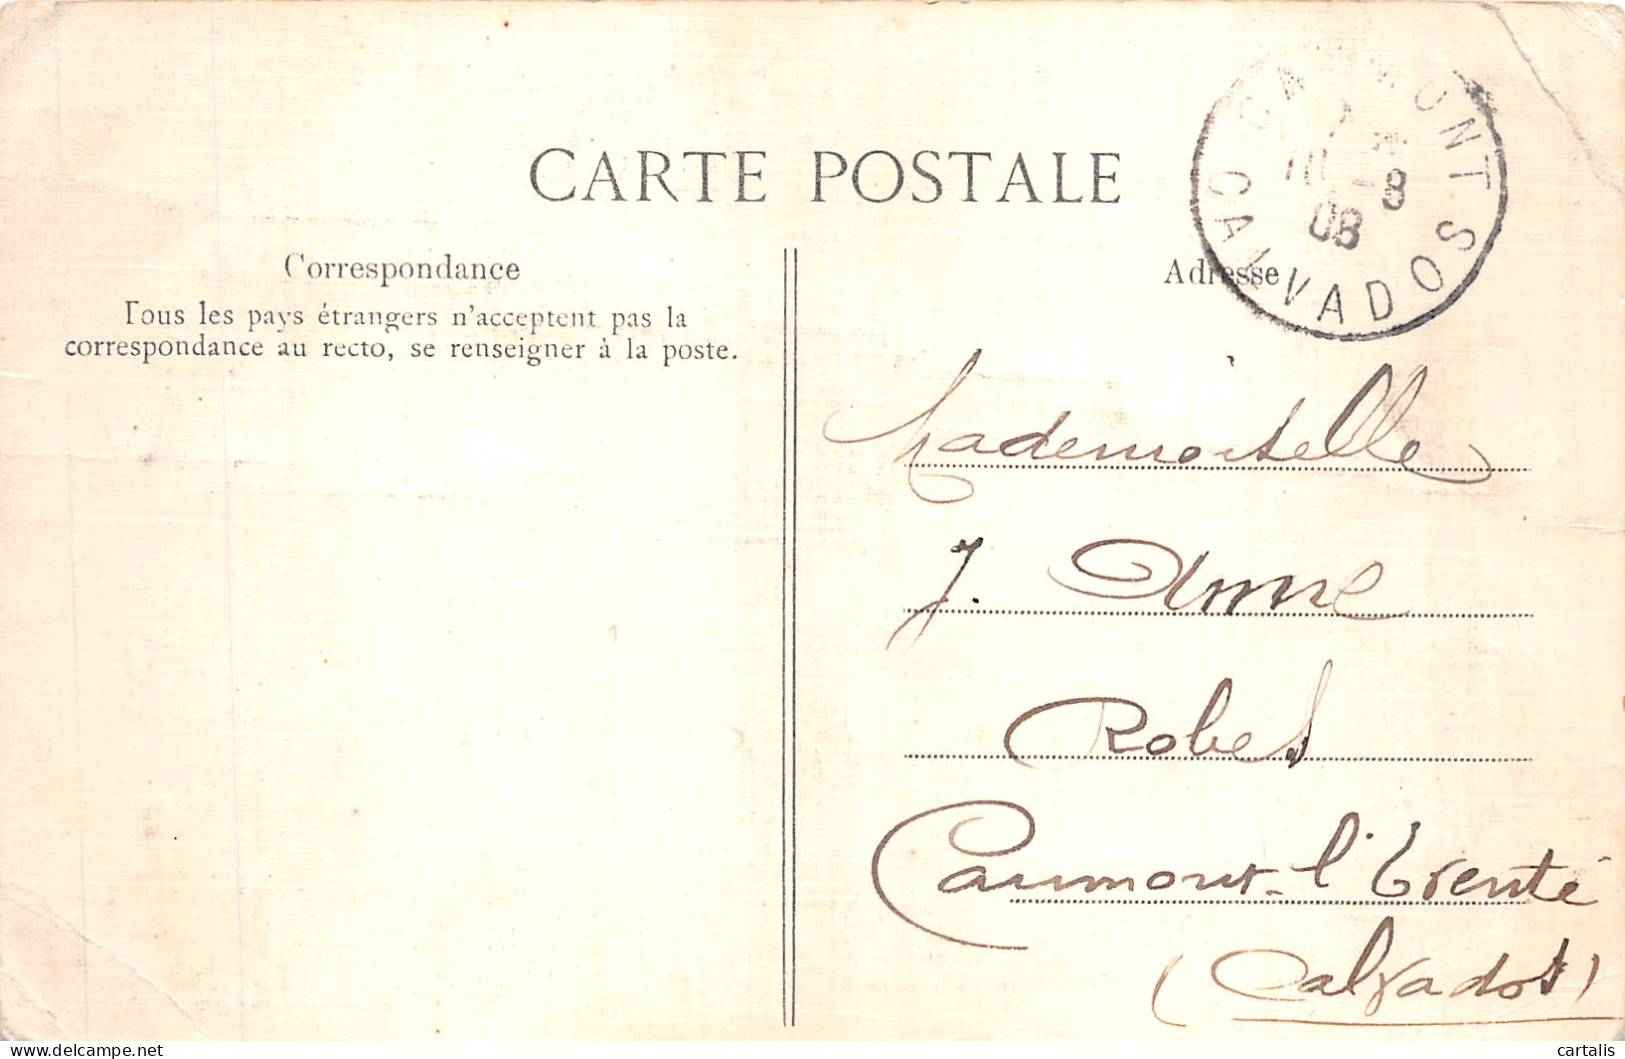 CARTE POSTALE
Correspondance
Tous les pays étrangers n'acceptent pas la
correspondance au recto, se renseigner à la poste.
Adresse
CAUMONT
10 -8
08
CALVADOS
Mademoiselle
J. Anne
Robes
Caumont-l'Eventé
(Calvados)
delcampe.net
cartalis